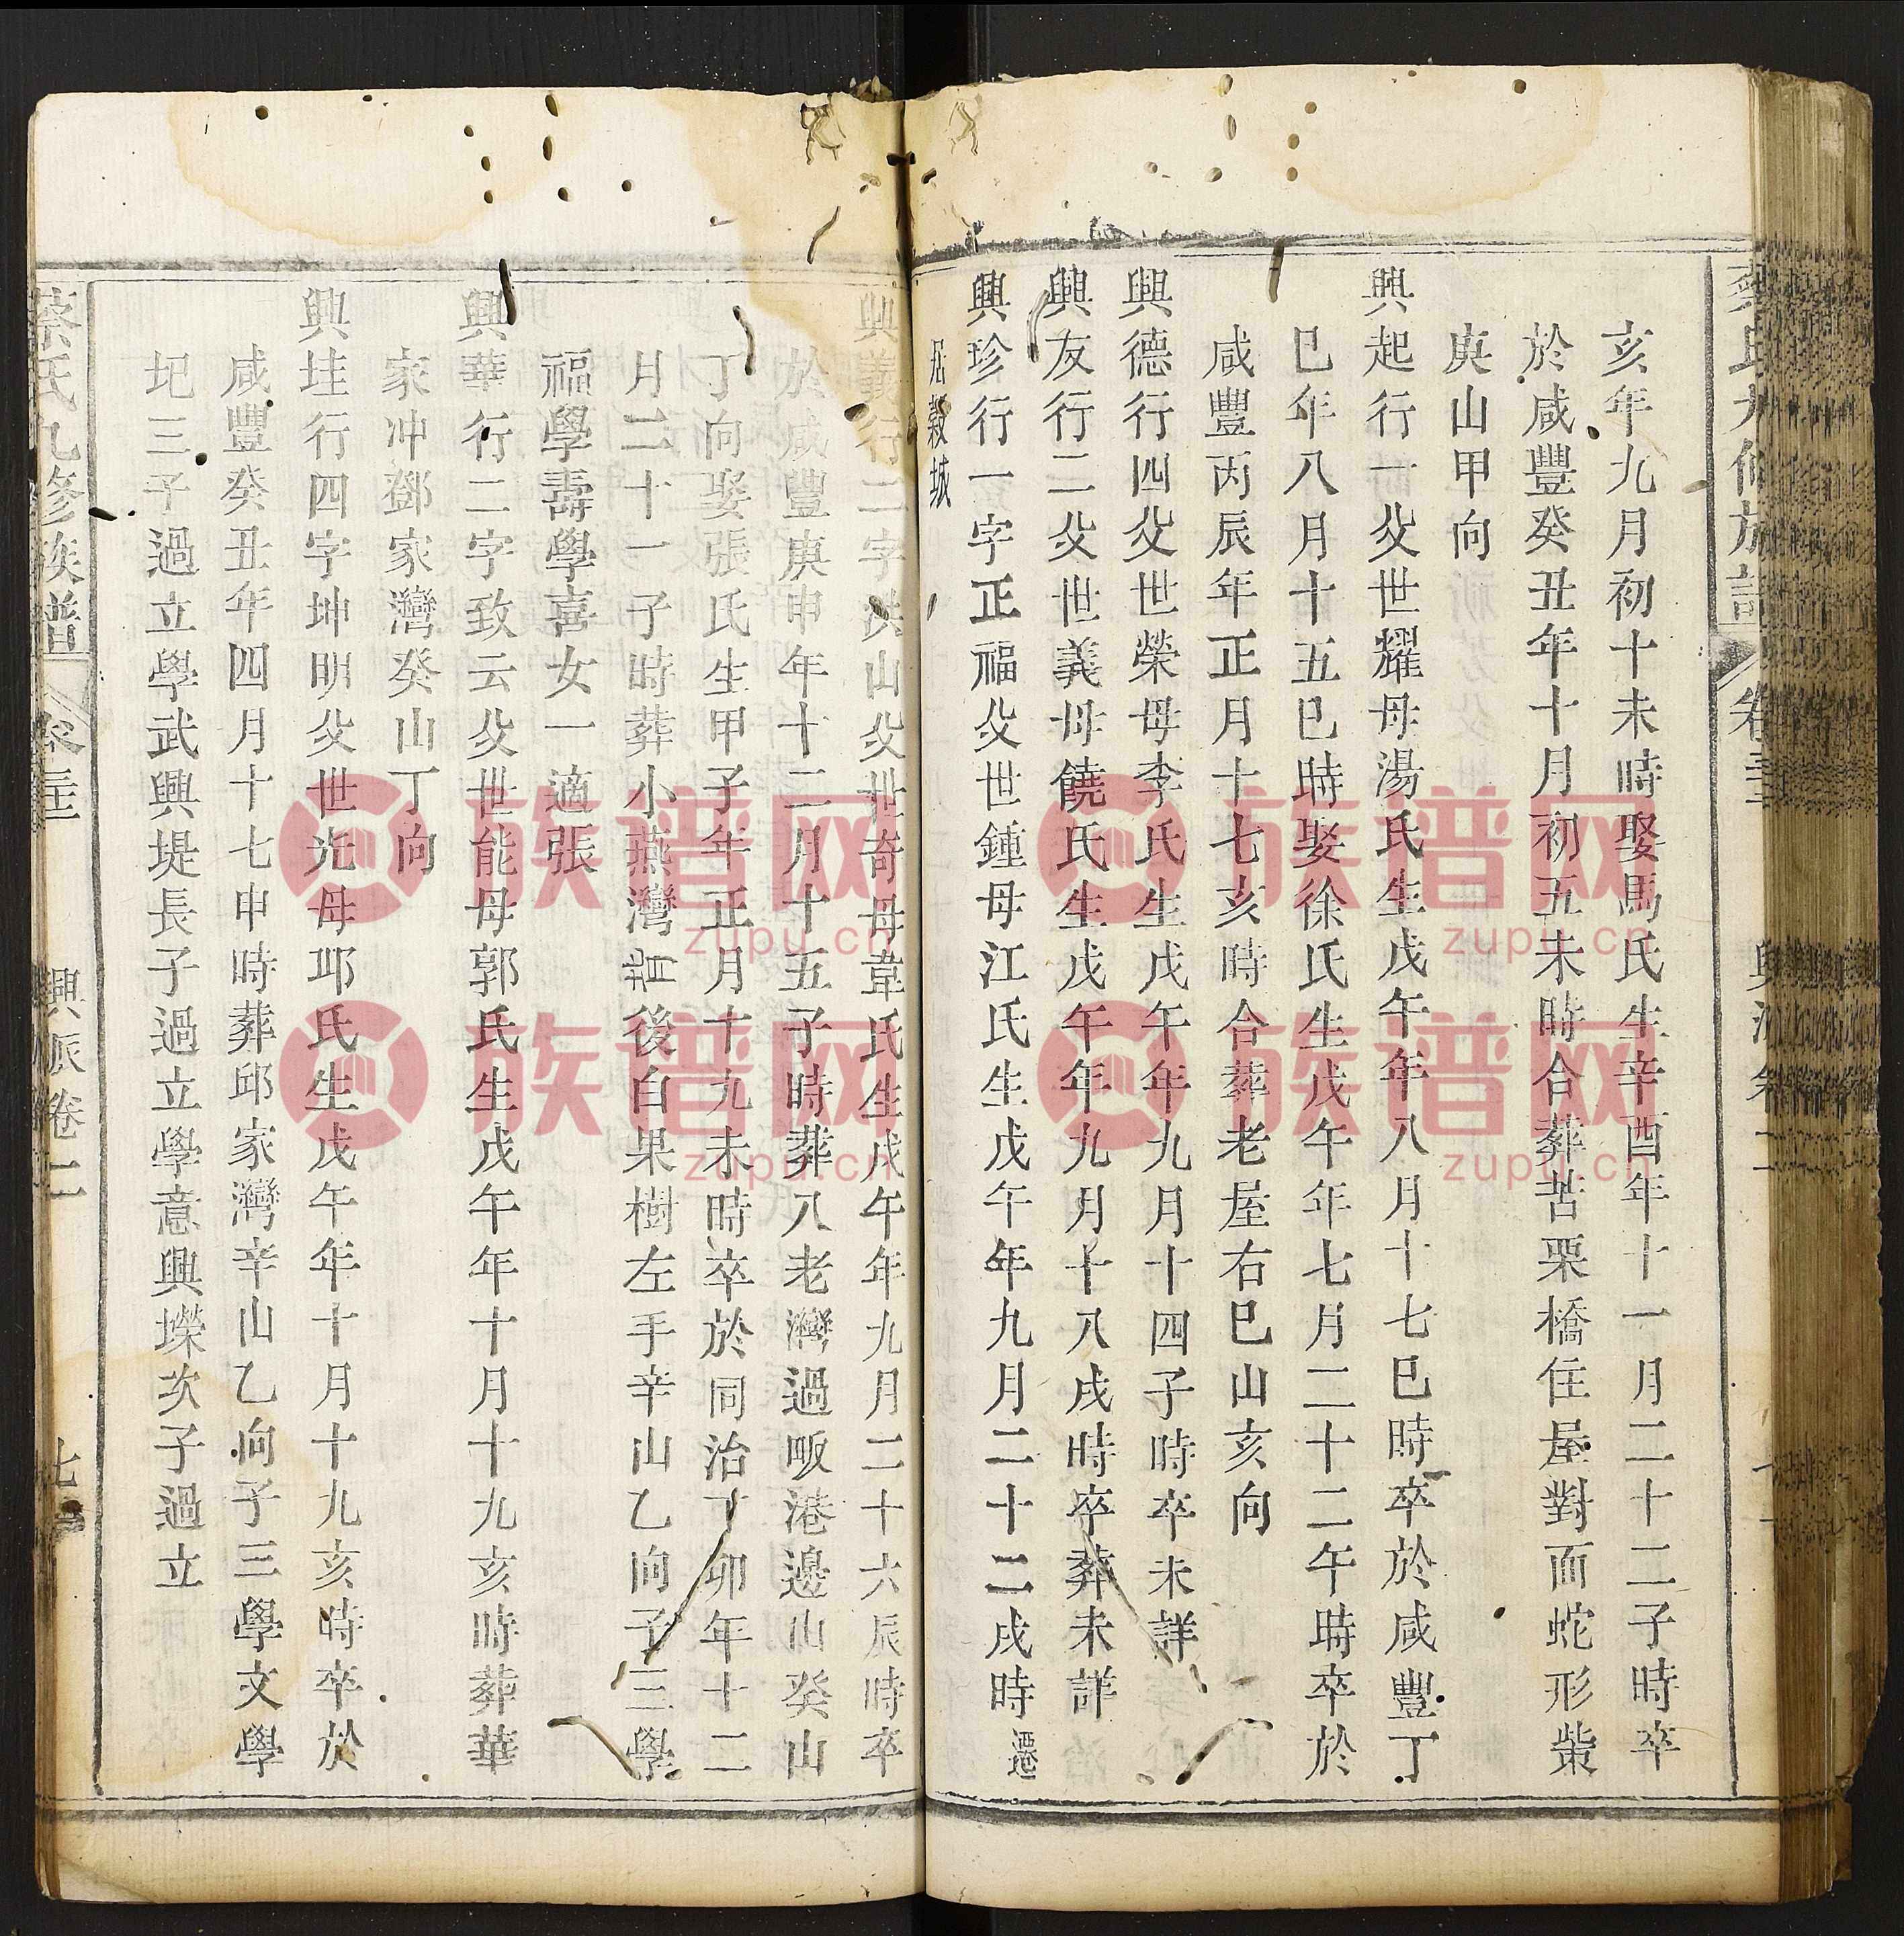 亥年九月初十未時娶馬氏生辛酉年十一月二十二子時卒
於咸豐癸丑年十月初五未時合葬苦栗橋住屋對面蛇形柴
庚山甲向
興起行一父世耀母湯氏生戊午年八月十七巳時卒於咸豐丁
巳年八月十五巳時娶徐氏生戊午年七月二十二午時卒於
咸豐丙辰年正月十七亥時合葬老屋右巳山亥向
興德行四父世榮母李氏生戊午年九月十四子時卒未詳
興友行二父世義母饒氏生戊午年九月十八戌時卒葬未詳
興珍行一字正福父世鍾母江氏生戊午年九月二十二戌時遷
居穀城
興義行二字洪山父世奇母韋氏生戊午年九月二十六辰時卒
於咸豐庚申年十二月十五子時葬八老灣過畈港邊山癸山
丁向娶張氏生甲子年正月十九未時卒於同治丁卯年十二
月二十一子時葬小燕灣後白果樹左手辛山乙向子三學
福學壽學喜女一適張
興華行二字致云父世能母郭氏生戊午年十月十九亥時葬華
家冲鄧家灣癸山丁向
興垚行四字坤明父世光母邱氏生戊午年十月十九亥時卒於
咸豐癸丑年四月十七申時葬邱家灣辛山乙向子三學文學
圯三子過立學武興堤長子過立學意興壏次子過立
蔡氏九修族譜
卷三
興派卷二
七